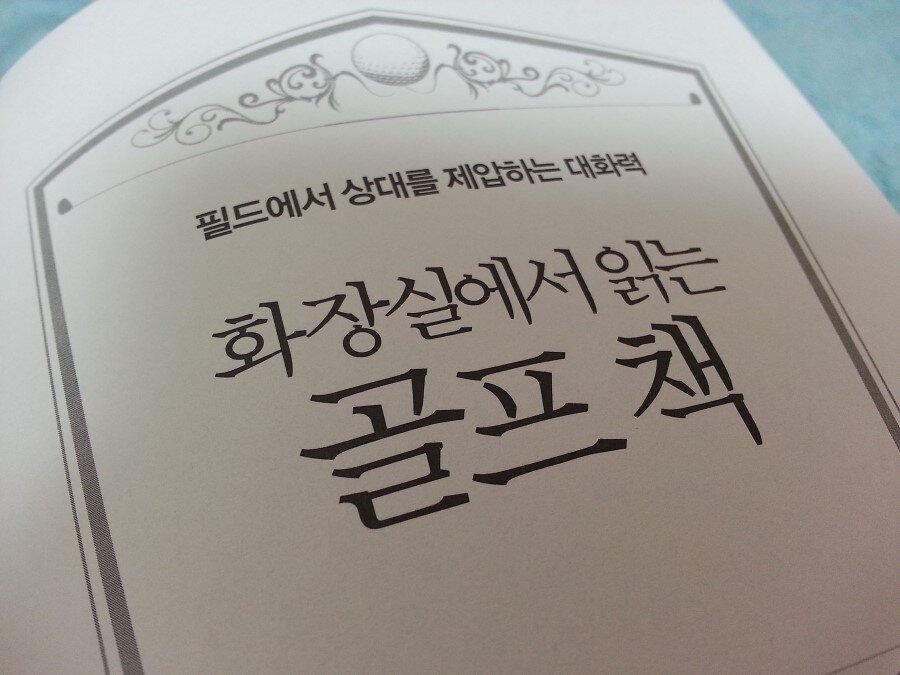 필드에서 상대를 제압하는 대화력
화장실에서 읽는
골프 책